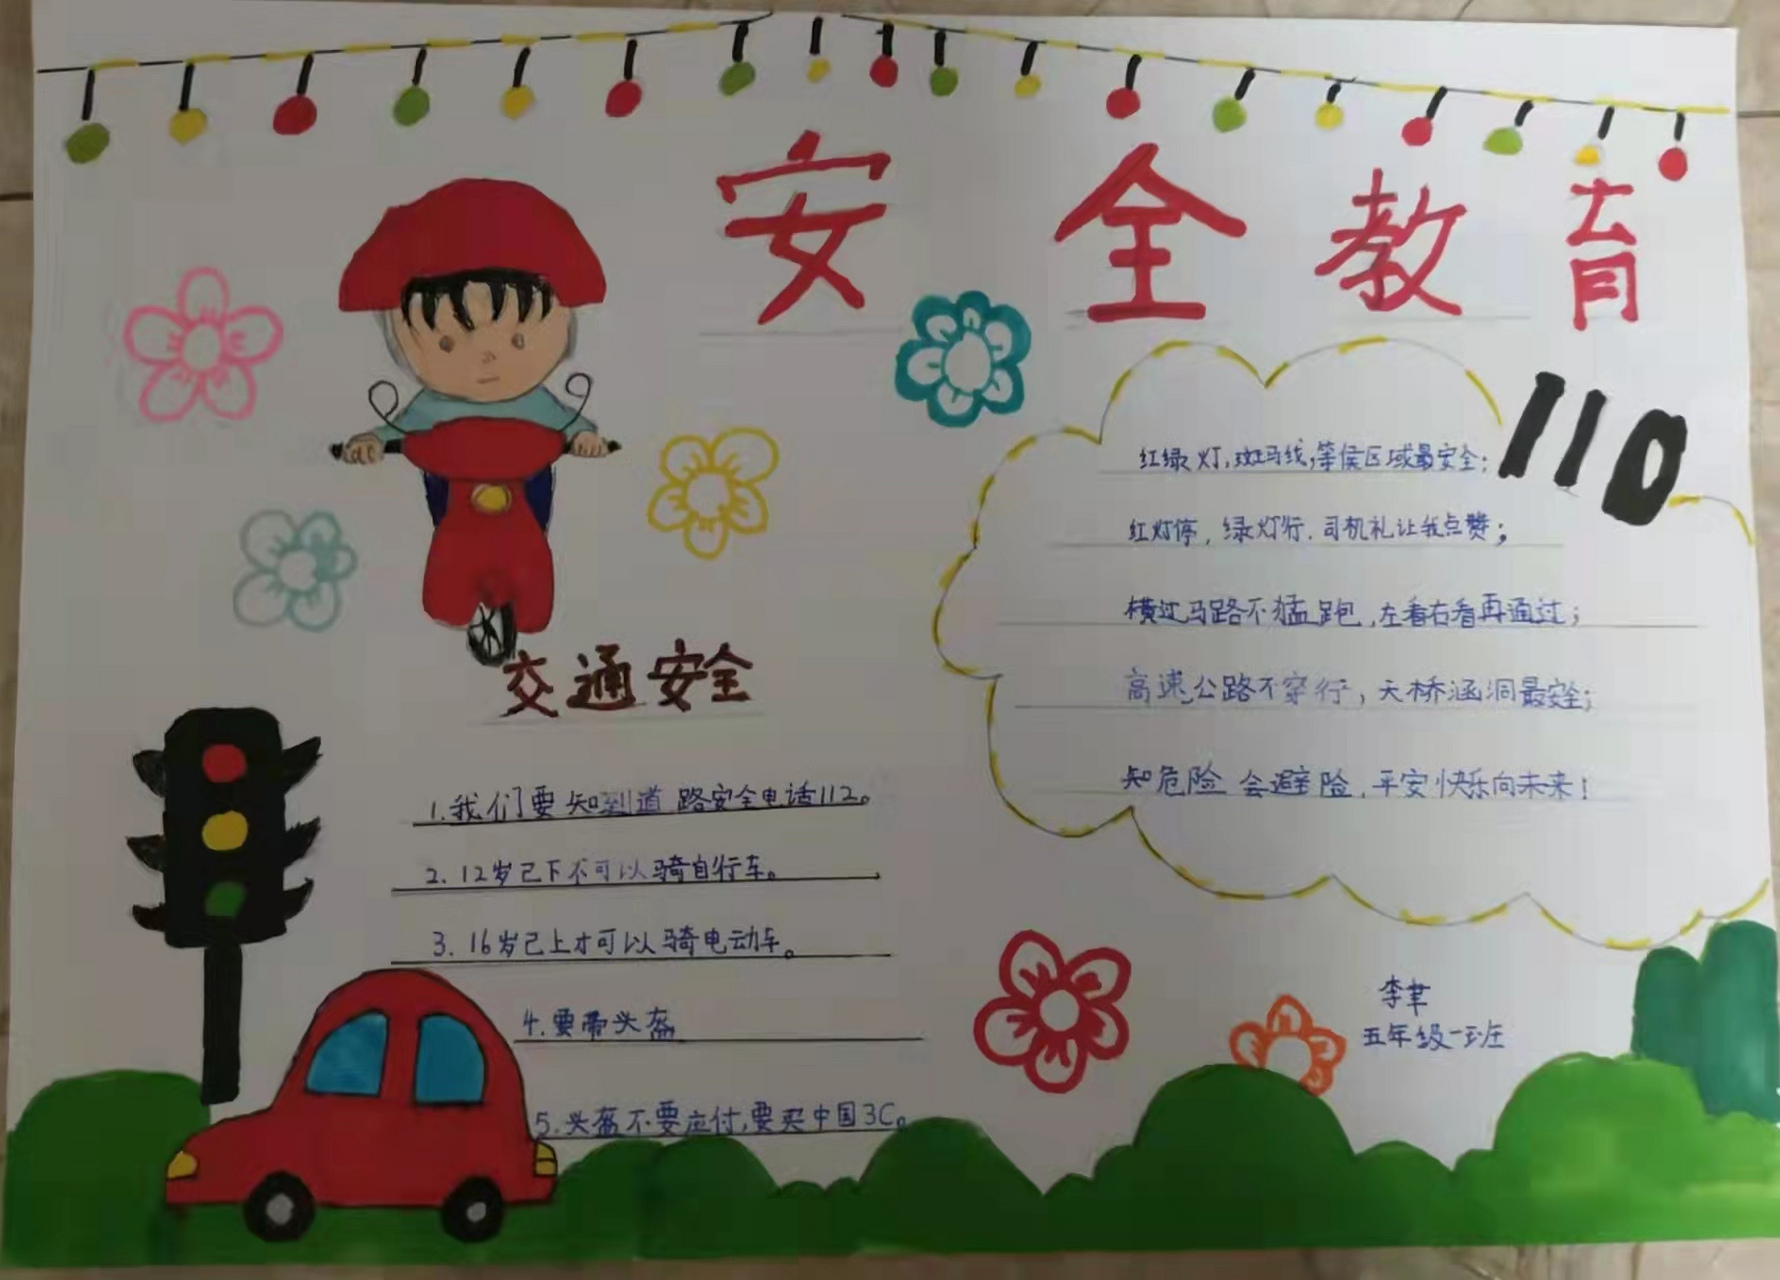 安全教育
110
红绿灯,斑马线,等侯区域最安全;
红灯停,绿灯行.司机礼让我点赞;
横过马路不猛跑,左看右看再通过;
高速公路不穿行,天桥涵洞最安全;
知危险 会避险,平安快乐向未来!
交通安全
1.我们要知到道路安全电话112。
2.12岁己下不可以骑自行车。
3.16岁己上才可以骑电动车。
4.要带头盔
5.头盔不要应付,要买中国3C。
李聿
五年级一班